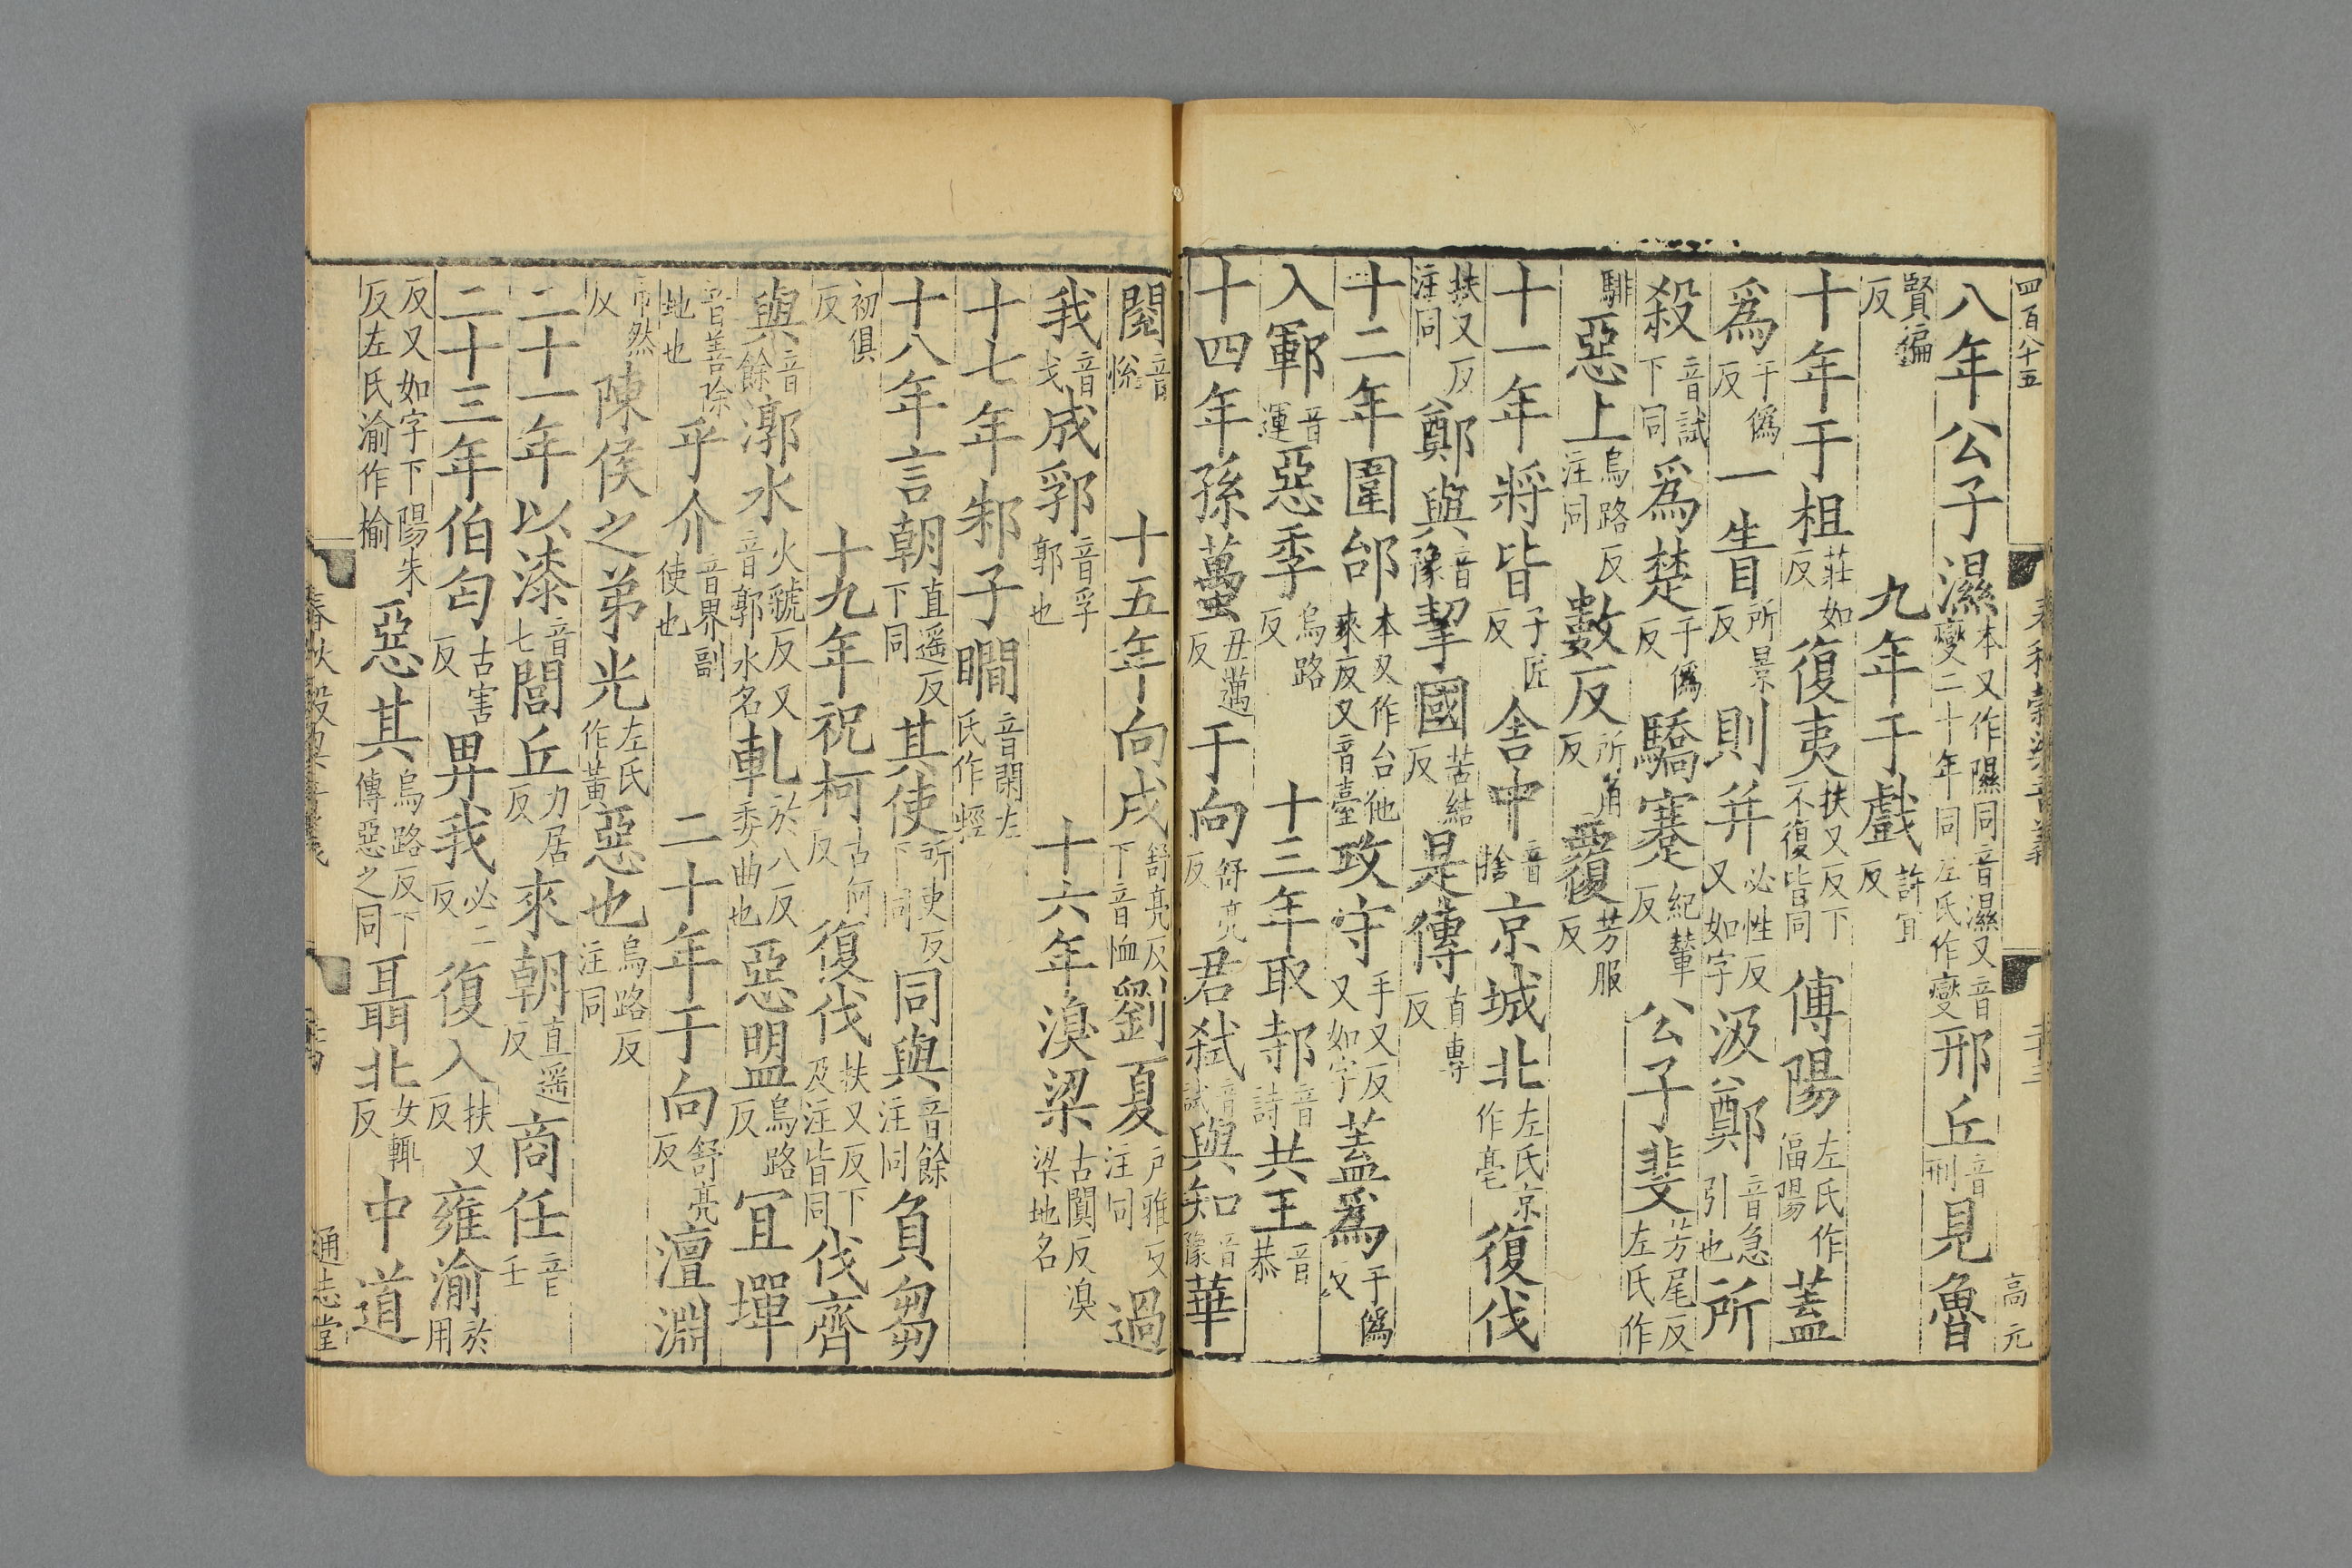 四百八十五 春秋穀梁音義 二十三 高元
八年公子濕本又作隰同音濕又音燮二十年同左氏作燮邢丘音刑見魯
賢徧反 九年于戲許宜反
十年于柤莊如反復夷扶又反下不復皆同傅陽左氏作偪陽蓋
爲于僞反一眚所景反則并必性反又如字汲鄭音急引也所
殺音試下同爲楚于僞反驕蹇紀輦反公子斐芳尾反左氏作
騑惡上烏路反注同數反所角反覆芳服反
十一年將皆子匠反舍中音捨京城北左氏京作亳復伐
扶又反注同鄭與音豫挈國苦結反是傳直專反
十二年圍邰本又作台他來反又音臺攻守手又反又如字蓋爲于僞反
入鄆音運惡季烏路反 十三年取邿音詩共王音恭
十四年孫蠆丑邁反于向舒亮反君弒音試與知音豫華
閱音悅 十五年向戌舒亮反下音恤劉夏戶雅反注同過
我音戈成郛音孚郭也 十六年湨梁古闃反湨梁地名
十七年邾子瞷音閑左氏作牼
十八年言朝直遥反下同其使所吏反下同同與音餘注同負芻
初俱反 十九年祝柯古何反復伐扶又反下及注皆同伐齊
與音餘漷水火虢反又音郭水名軋於八反委曲也惡盟烏路反宜墠
音善除地也乎介音界副使也 二十年于向舒亮反澶淵
市然反陳侯之弟光左氏作黃惡也烏路反注同
二十一年以漆音七閭丘力居反來朝直遥反商任音壬
二十三年伯匄古害反畀我必二反復入扶又反雍渝於用
反又如字下陽朱反左氏渝作榆惡其烏路反下傳惡之同聶北女輒反中道
春秋穀梁音義 通志堂